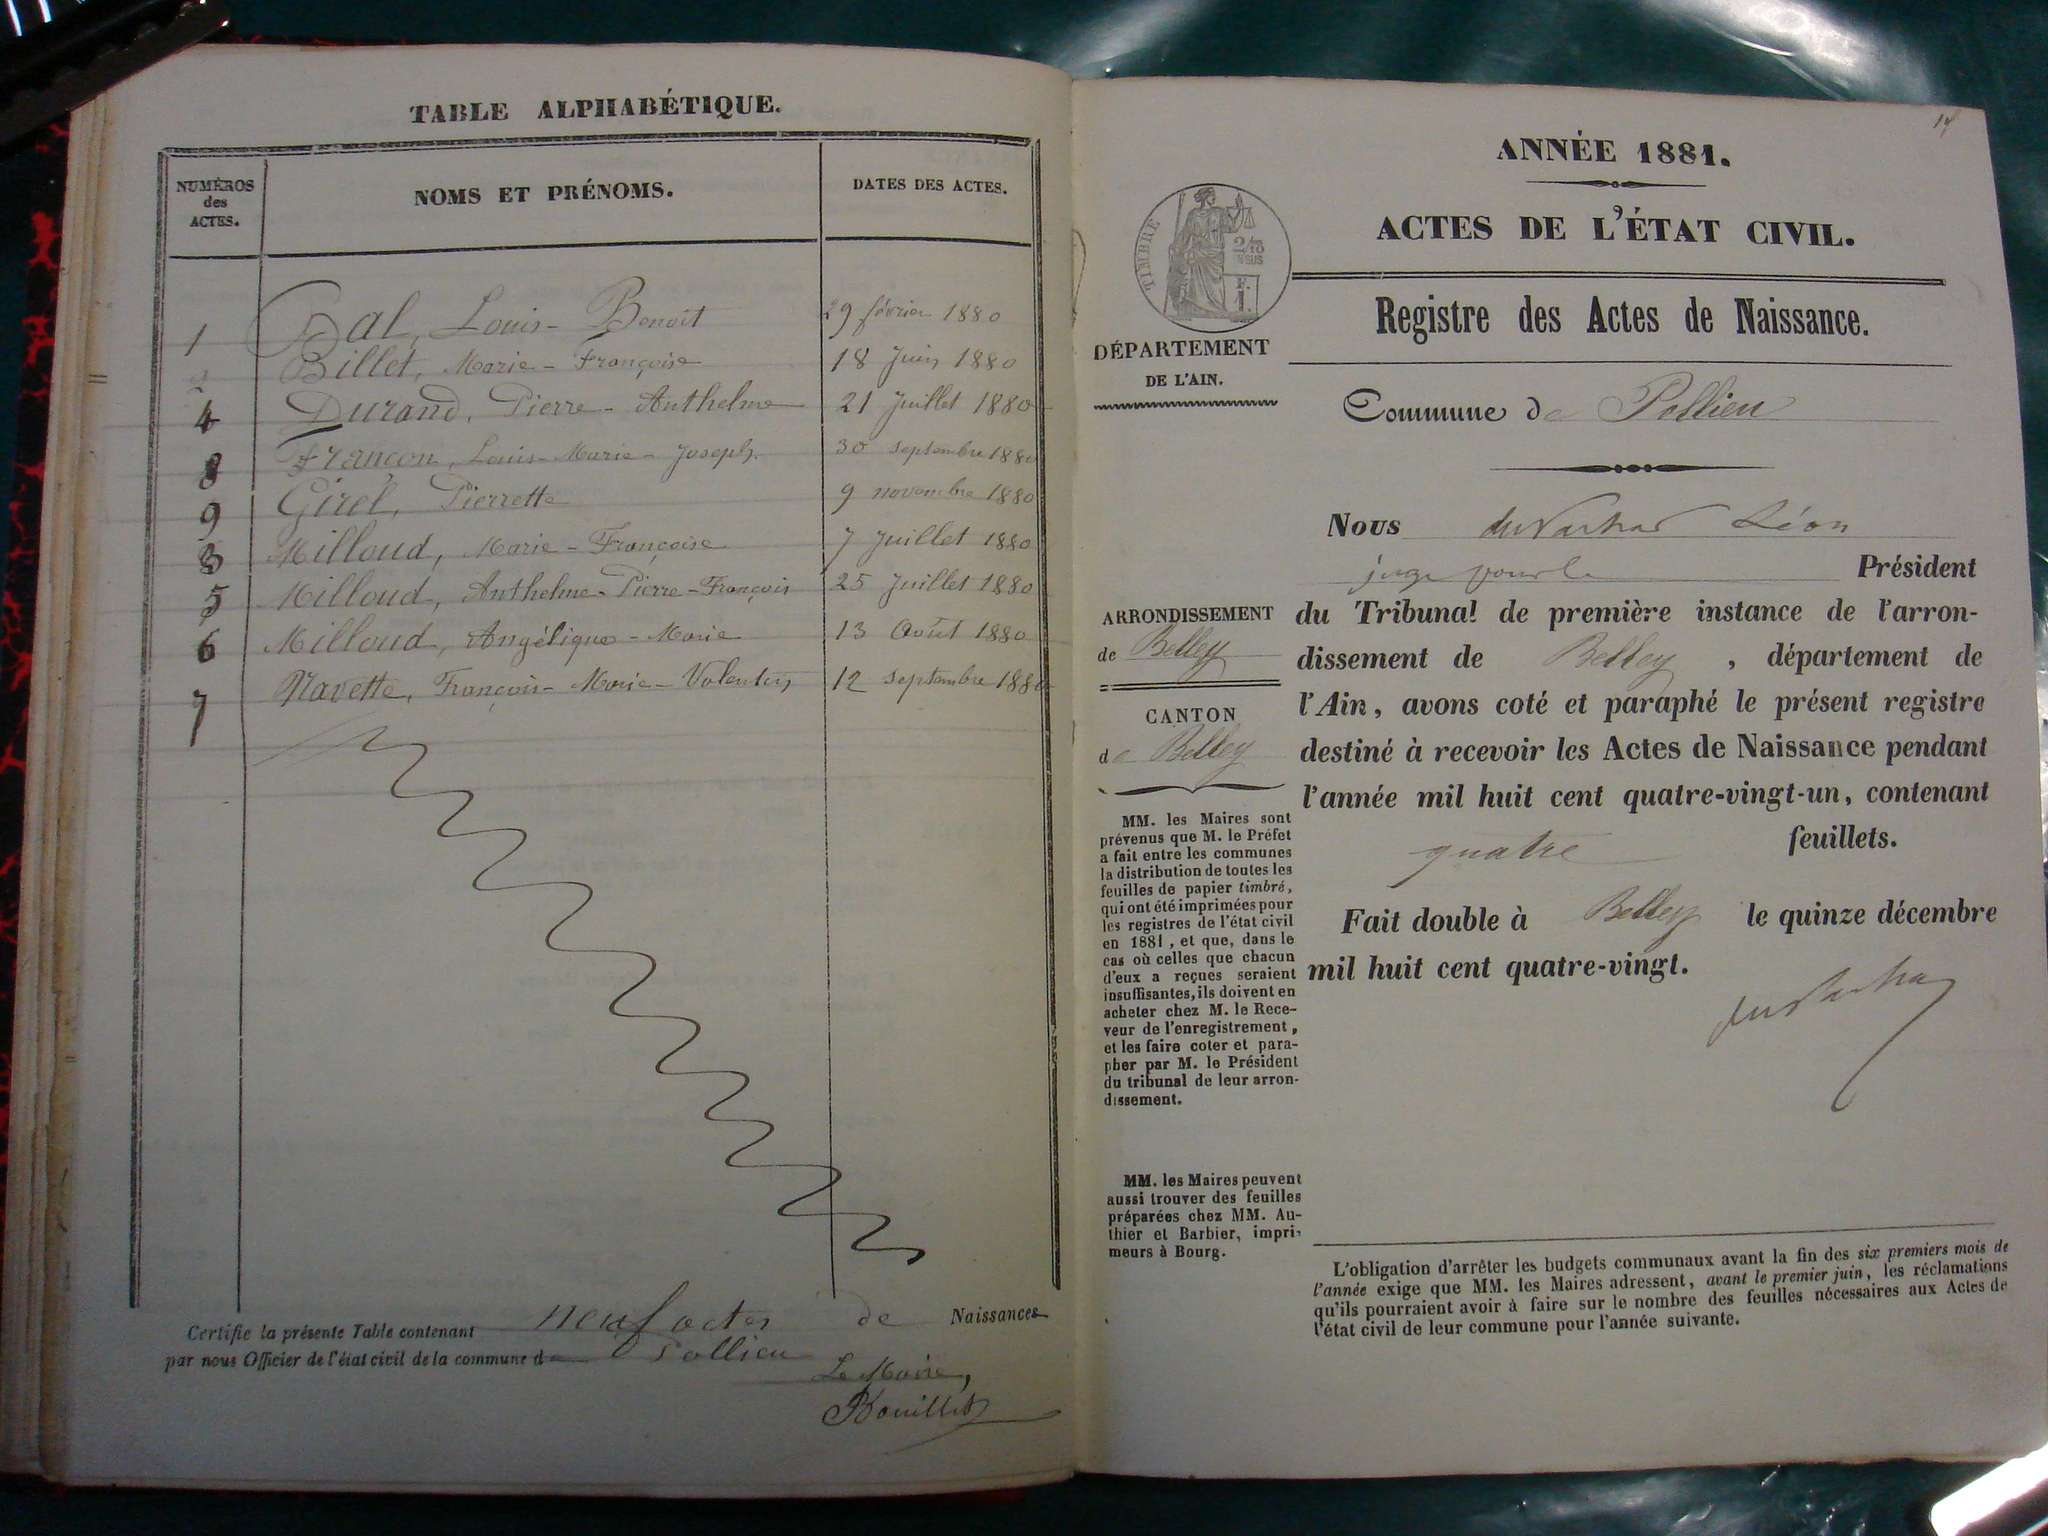 TABLE ALPHABÉTIQUE.
NUMÉROS des ACTES.
NOMS ET PRÉNOMS.
DATES DES ACTES.
1 Bal, Louis-Benoit 29 février 1880
2 Billet, Marie-Françoise 18 Juin 1880
4 Durand, Pierre-Anthelme 21 Juillet 1880
8 Françon, Louis-Marie-Joseph. 30 septembre 1880
9 Girel, Pierrette 9 novembre 1880
3 Milloud, Marie-Françoise 7 Juillet 1880
5 Milloud, Anthelme-Pierre-François 25 Juillet 1880
6 Milloud, Angélique-Marie 13 Août 1880
7 Navette, François-Marie-Valentin 12 septembre 1880
Certifie la présente Table contenant neuf actes de Naissances
par nous Officier de l'état civil de la commune de Pollieu
Le Maire,
Bouillet
14
ANNÉE 1881.
ACTES DE L'ÉTAT CIVIL.
TIMBRE
Registre des Actes de Naissance.
DÉPARTEMENT
DE L'AIN.
Commune de Pollieu
Nous Léon
juge pour le Président
du Tribunal de première instance de l'arron-
dissement de Belley, département de
l'Ain, avons coté et paraphé le présent registre
destiné à recevoir les Actes de Naissance pendant
l'année mil huit cent quatre-vingt-un, contenant
quatre feuillets.
Fait double à Belley le quinze décembre
mil huit cent quatre-vingt.
ARRONDISSEMENT
de Belley
CANTON
de Belley
MM. les Maires sont
prévenus que M. le Préfet
a fait entre les communes
la distribution de toutes les
feuilles de papier timbré,
qui ont été imprimées pour
les registres de l'état civil
en 1881, et que, dans le
cas où celles que chacun
d'eux a reçues seraient
insuffisantes, ils doivent en
acheter chez M. le Rece-
veur de l'enregistrement,
et les faire coter et para-
pher par M. le Président
du tribunal de leur arron-
dissement.
MM. les Maires peuvent
aussi trouver des feuilles
préparées chez MM. Au-
thier et Barbier, impri-
meurs à Bourg.
L'obligation d'arrêter les budgets communaux avant la fin des six premiers mois de
l'année exige que MM. les Maires adressent, avant le premier juin, les réclamations
qu'ils pourraient avoir à faire sur le nombre des feuilles nécessaires aux Actes de
l'état civil de leur commune pour l'année suivante.